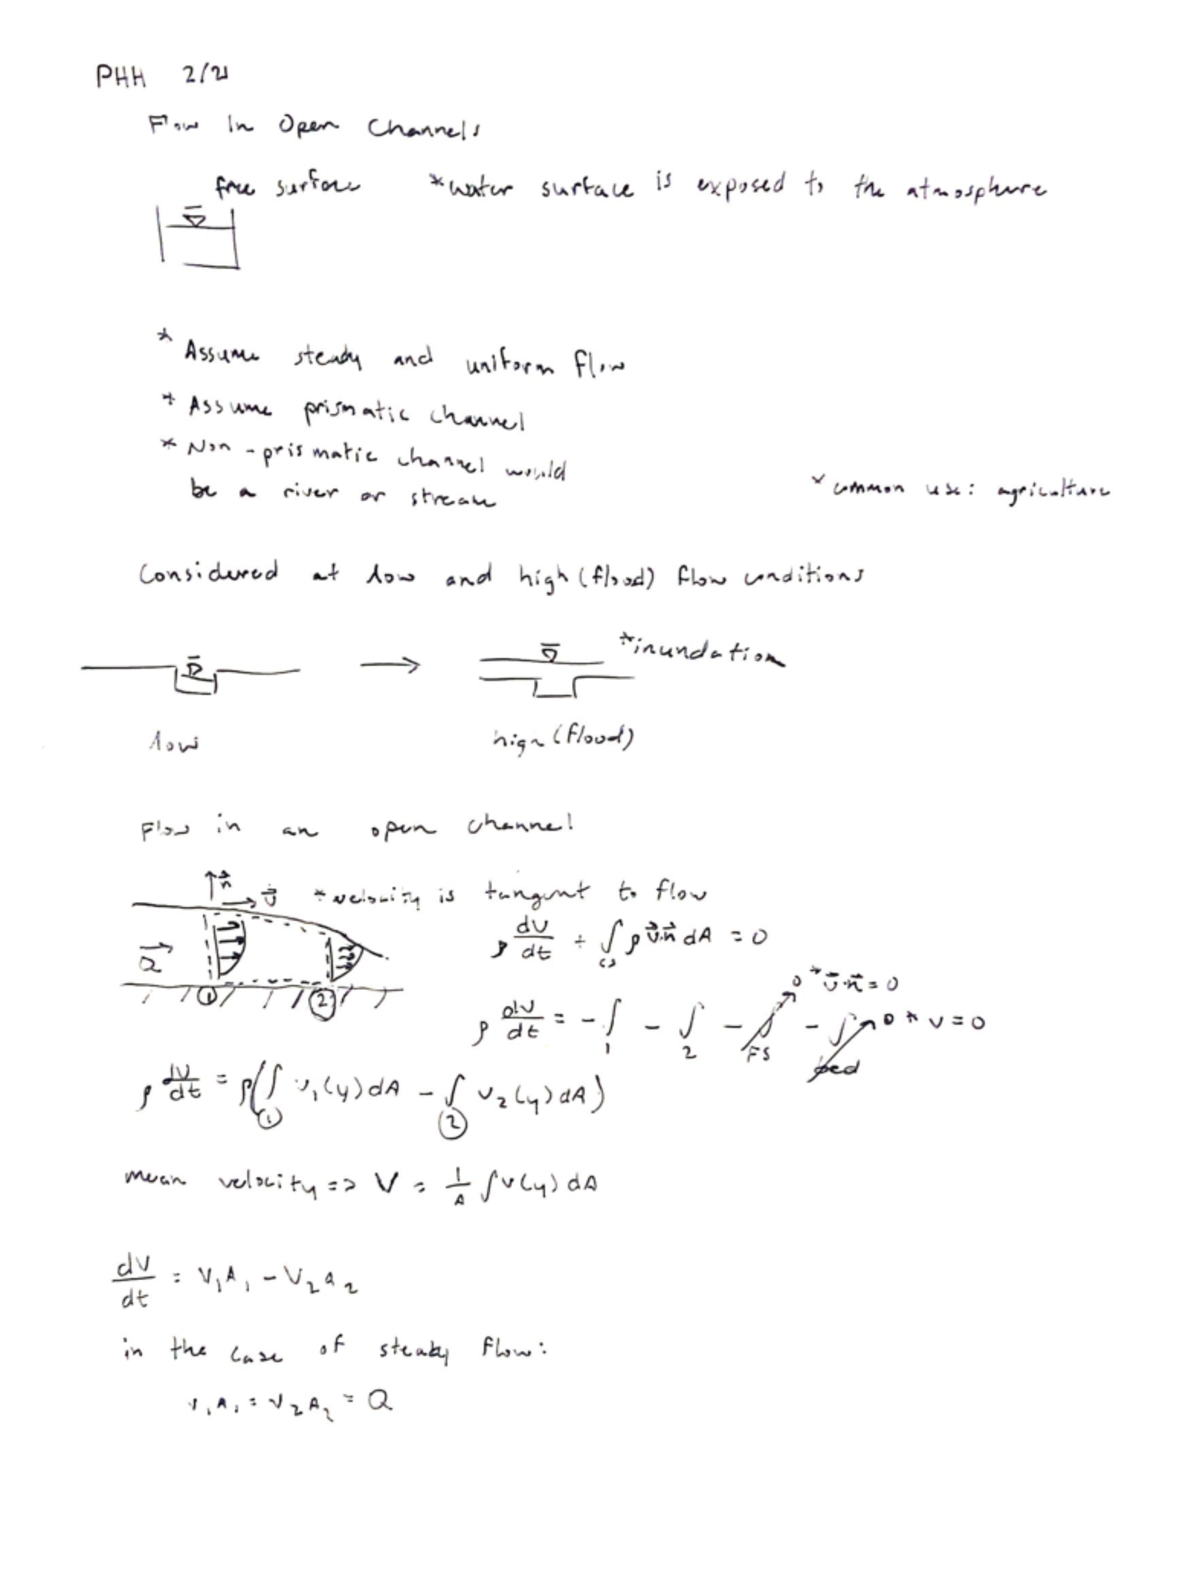 PHH 2/21
Flow In Open Channels
free surface *water surface is exposed to the atmosphere
* Assume steady and uniform flow
* Assume prismatic channel
* Non-prismatic channel would
be a river or stream
*common use: agriculture
Considered at low and high (flood) flow conditions
*inundation
low
high (flood)
Flow in an open channel
n⃗ v⃗ *velocity is tangent to flow
ρ dV/dt + ∫ ρ v⃗·n⃗ dA = 0
① ②
0 *v⃗·n⃗ = 0
ρ dV/dt = -∫₁ - ∫₂ - ∫FS - ∫bed 0 * v = 0
ρ dV/dt = ρ(∫① v₁(y) dA - ∫② v₂(y) dA)
mean velocity => V = 1/A ∫v(y) dA
dV/dt = V₁A₁ - V₂a₂
in the case of steady flow:
V₁A₁ = V₂A₂ = Q